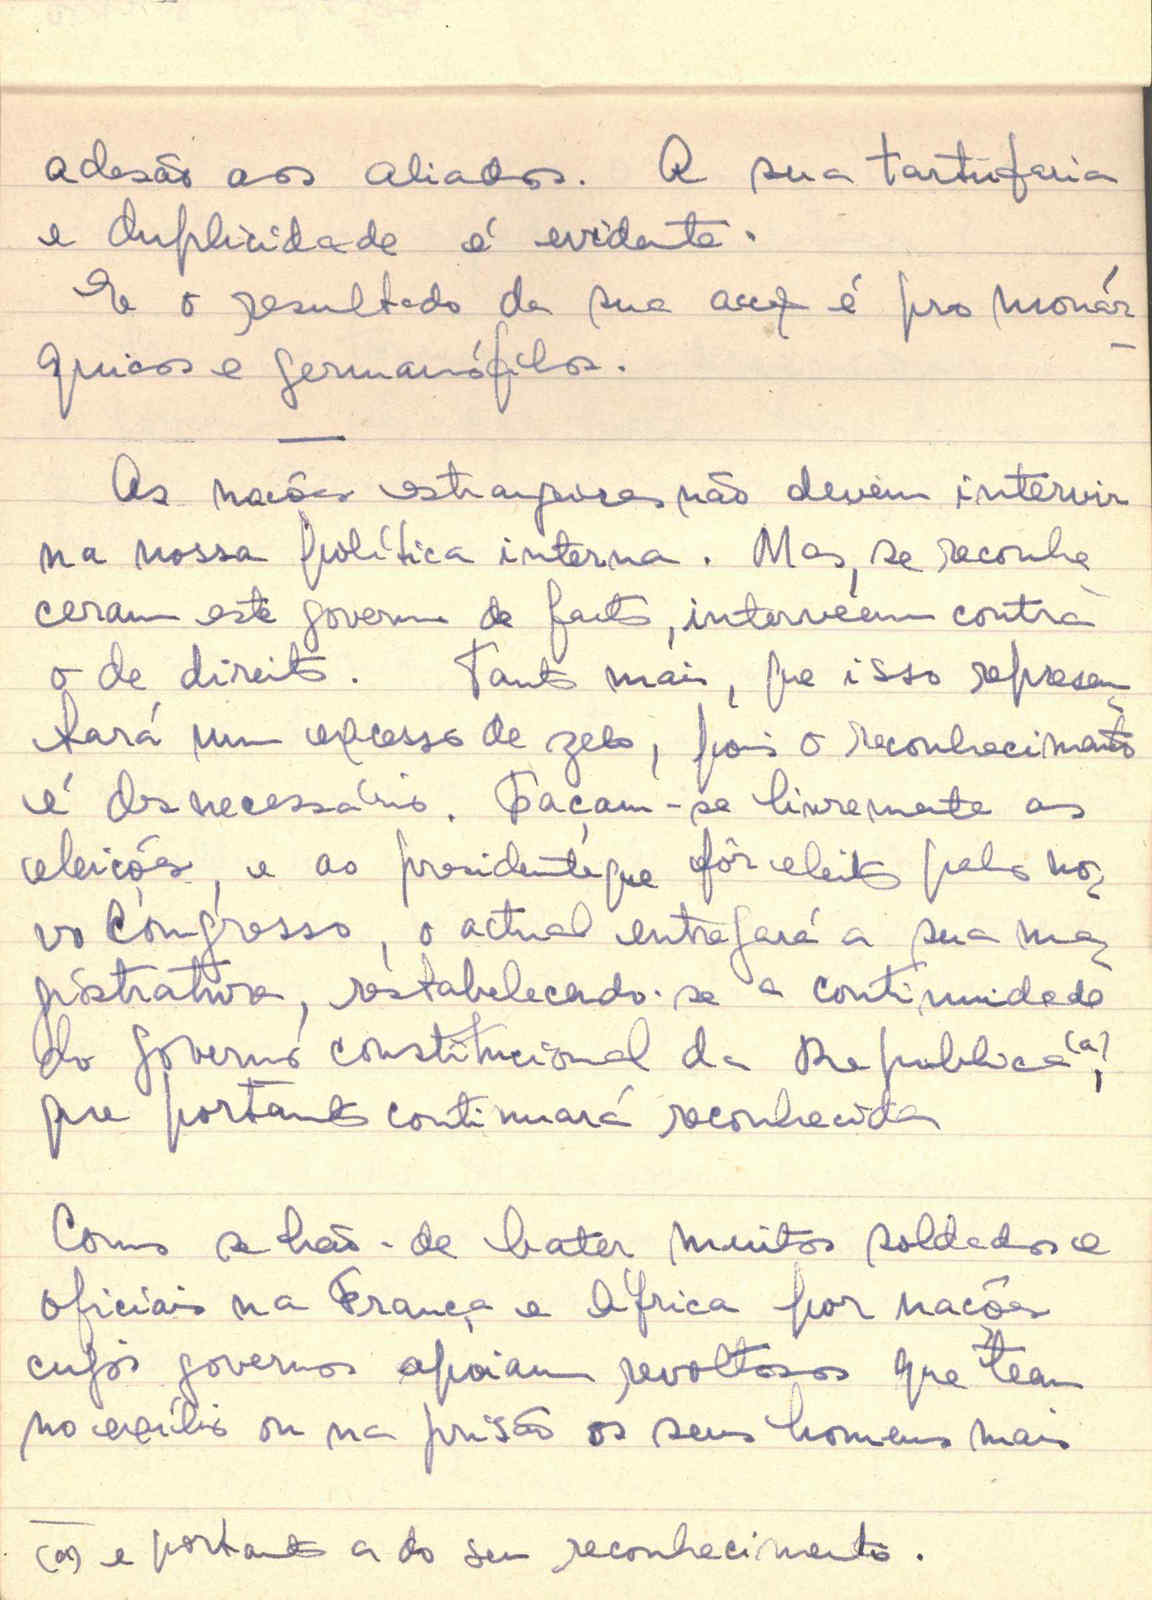 adesão aos aliados. A sua tartuferia
e duplicidade é evidente.
E o resultado da sua acç é pro monár-
quicos e germanófilos.
As nações estrangeiras não devem intervir
na nossa política interna. Mas, se reconhe-
ceram este governo de facto, interveem contra
o de direito. Tanto mais, que isso represen-
tará um excesso de zelo, pois o reconhecimento
é desnecessário. Façam-se livremente as
eleições, e ao presidente que fôr eleito pelo no-
vo Congresso, o actual entregará a sua ma-
gistratura, restabelecendo-se a continuidade
do governo constitucional da Republica (a),
que portanto continuará reconhecida
Como se hão-de bater muitos soldados e
oficiais na França e África por nações
cujos governos apoiam revoltosos que team
no exílio ou na prisão os seus homens mais
(a) e portanto a do seu reconhecimento.